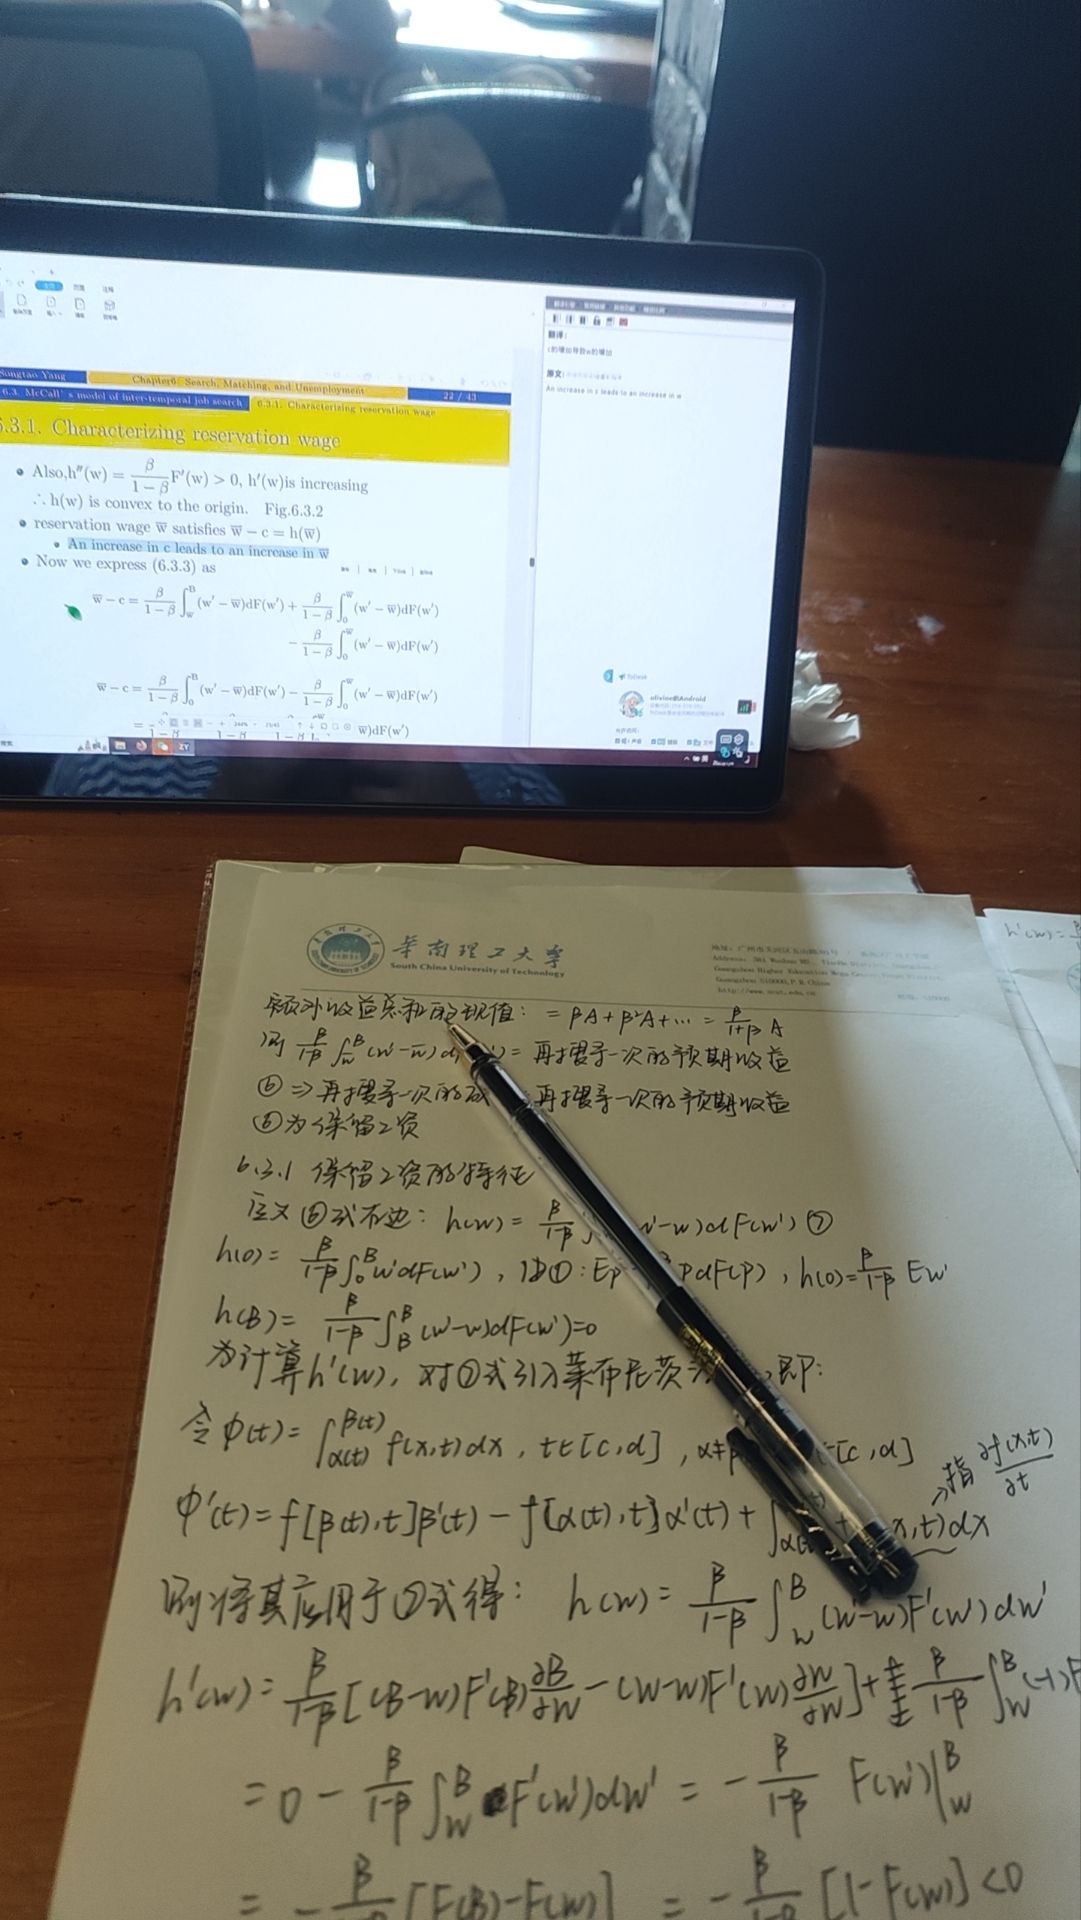 Songtao Yang Chapter6: Search, Matching, and Unemployment 22 / 43
6.3. McCall's model of inter-temporal job search 6.3.1. Characterizing reservation wage
6.3.1. Characterizing reservation wage
• Also,h″(w) = β/(1−β) F′(w) > 0, h′(w)is increasing
∴ h(w) is convex to the origin. Fig.6.3.2
• reservation wage w̅ satisfies w̅ − c = h(w̅)
• An increase in c leads to an increase in w̅
• Now we express (6.3.3) as
w̅ − c = β/(1−β) ∫_w̅^B (w′ − w̅)dF(w′) + β/(1−β) ∫_0^w̅ (w′ − w̅)dF(w′)
− β/(1−β) ∫_0^w̅ (w′ − w̅)dF(w′)
w̅ − c = β/(1−β) ∫_0^B (w′ − w̅)dF(w′) − β/(1−β) ∫_0^w̅ (w′ − w̅)dF(w′)
w̅)dF(w′)
翻译:
c的增加导致w的增加
原文:
An increase in c leads to an increase in w
ToDesk
olivine的Android
华南理工大学
South China University of Technology
额外收益总和的现值: = βA + β²A + … = β/(1+β) A
则 β/(1-β) ∫_w̅^B (w′-w̅)d = 再搜寻一次的预期收益
⑥ ⇒ 再搜寻一次的 再搜寻一次的预期收益
⑥为保留工资
6.3.1 保留工资的特征
定义⑥式右边: h(w) = β/(1-β) ∫ w′-w)dF(w′) ⑦
h(0) = β/(1-β) ∫_0^B w′dF(w′) , 由①: Ep pdF(p) , h(0)= β/(1-β) Ew′
h(B) = β/(1-β) ∫_B^B (w′-w)dF(w′)=0
为计算h′(w), 对⑦式引入莱布尼茨 即:
令φ(t) = ∫_α(t)^β(t) f(x,t)dx , t∈[c,d] , α≠β t∈[c,d]
φ′(t) = f[β(t),t]β′(t) − f[α(t),t]α′(t) + ∫ x,t)dx → 指 ∂f(x,t)/∂t
则将其应用于⑦式得: h(w) = β/(1-β) ∫_w^B (w′-w)F′(w′)dw′
h′(w) = β/(1-β) [(B-w)F′(B) ∂B/∂w − (w-w)F′(w) ∂w/∂w] + β/(1-β) ∫_w^B (-1)F
= 0 − β/(1-β) ∫_w^B F′(w′)dw′ = − β/(1-β) F(w′)|_w^B
= − β/(1-β) [F(B)−F(w)] = − β/(1-β) [1−F(w)] <0